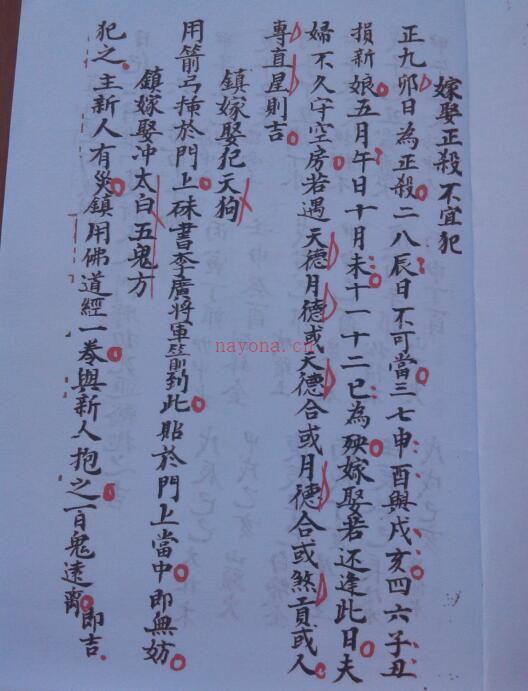 嫁娶正殺不宜犯
正九卯日為正殺二八辰日不可當三七申酉與戍亥四六子丑
損新娘五月午日十月未十一十二巳為殃嫁娶若还逢此日夫
婦不久守空房若遇天德月德或天德合或月德合或煞貢或人
專直星則吉
鎮嫁娶犯天狗
用箭弓掛於門上硃書李廣將軍箭到此貼於門上當中即無妨
鎮嫁娶冲太白五鬼方
犯之主新人有災鎮用佛道經一卷與新人抱之百鬼遠离即吉
nayona.cn